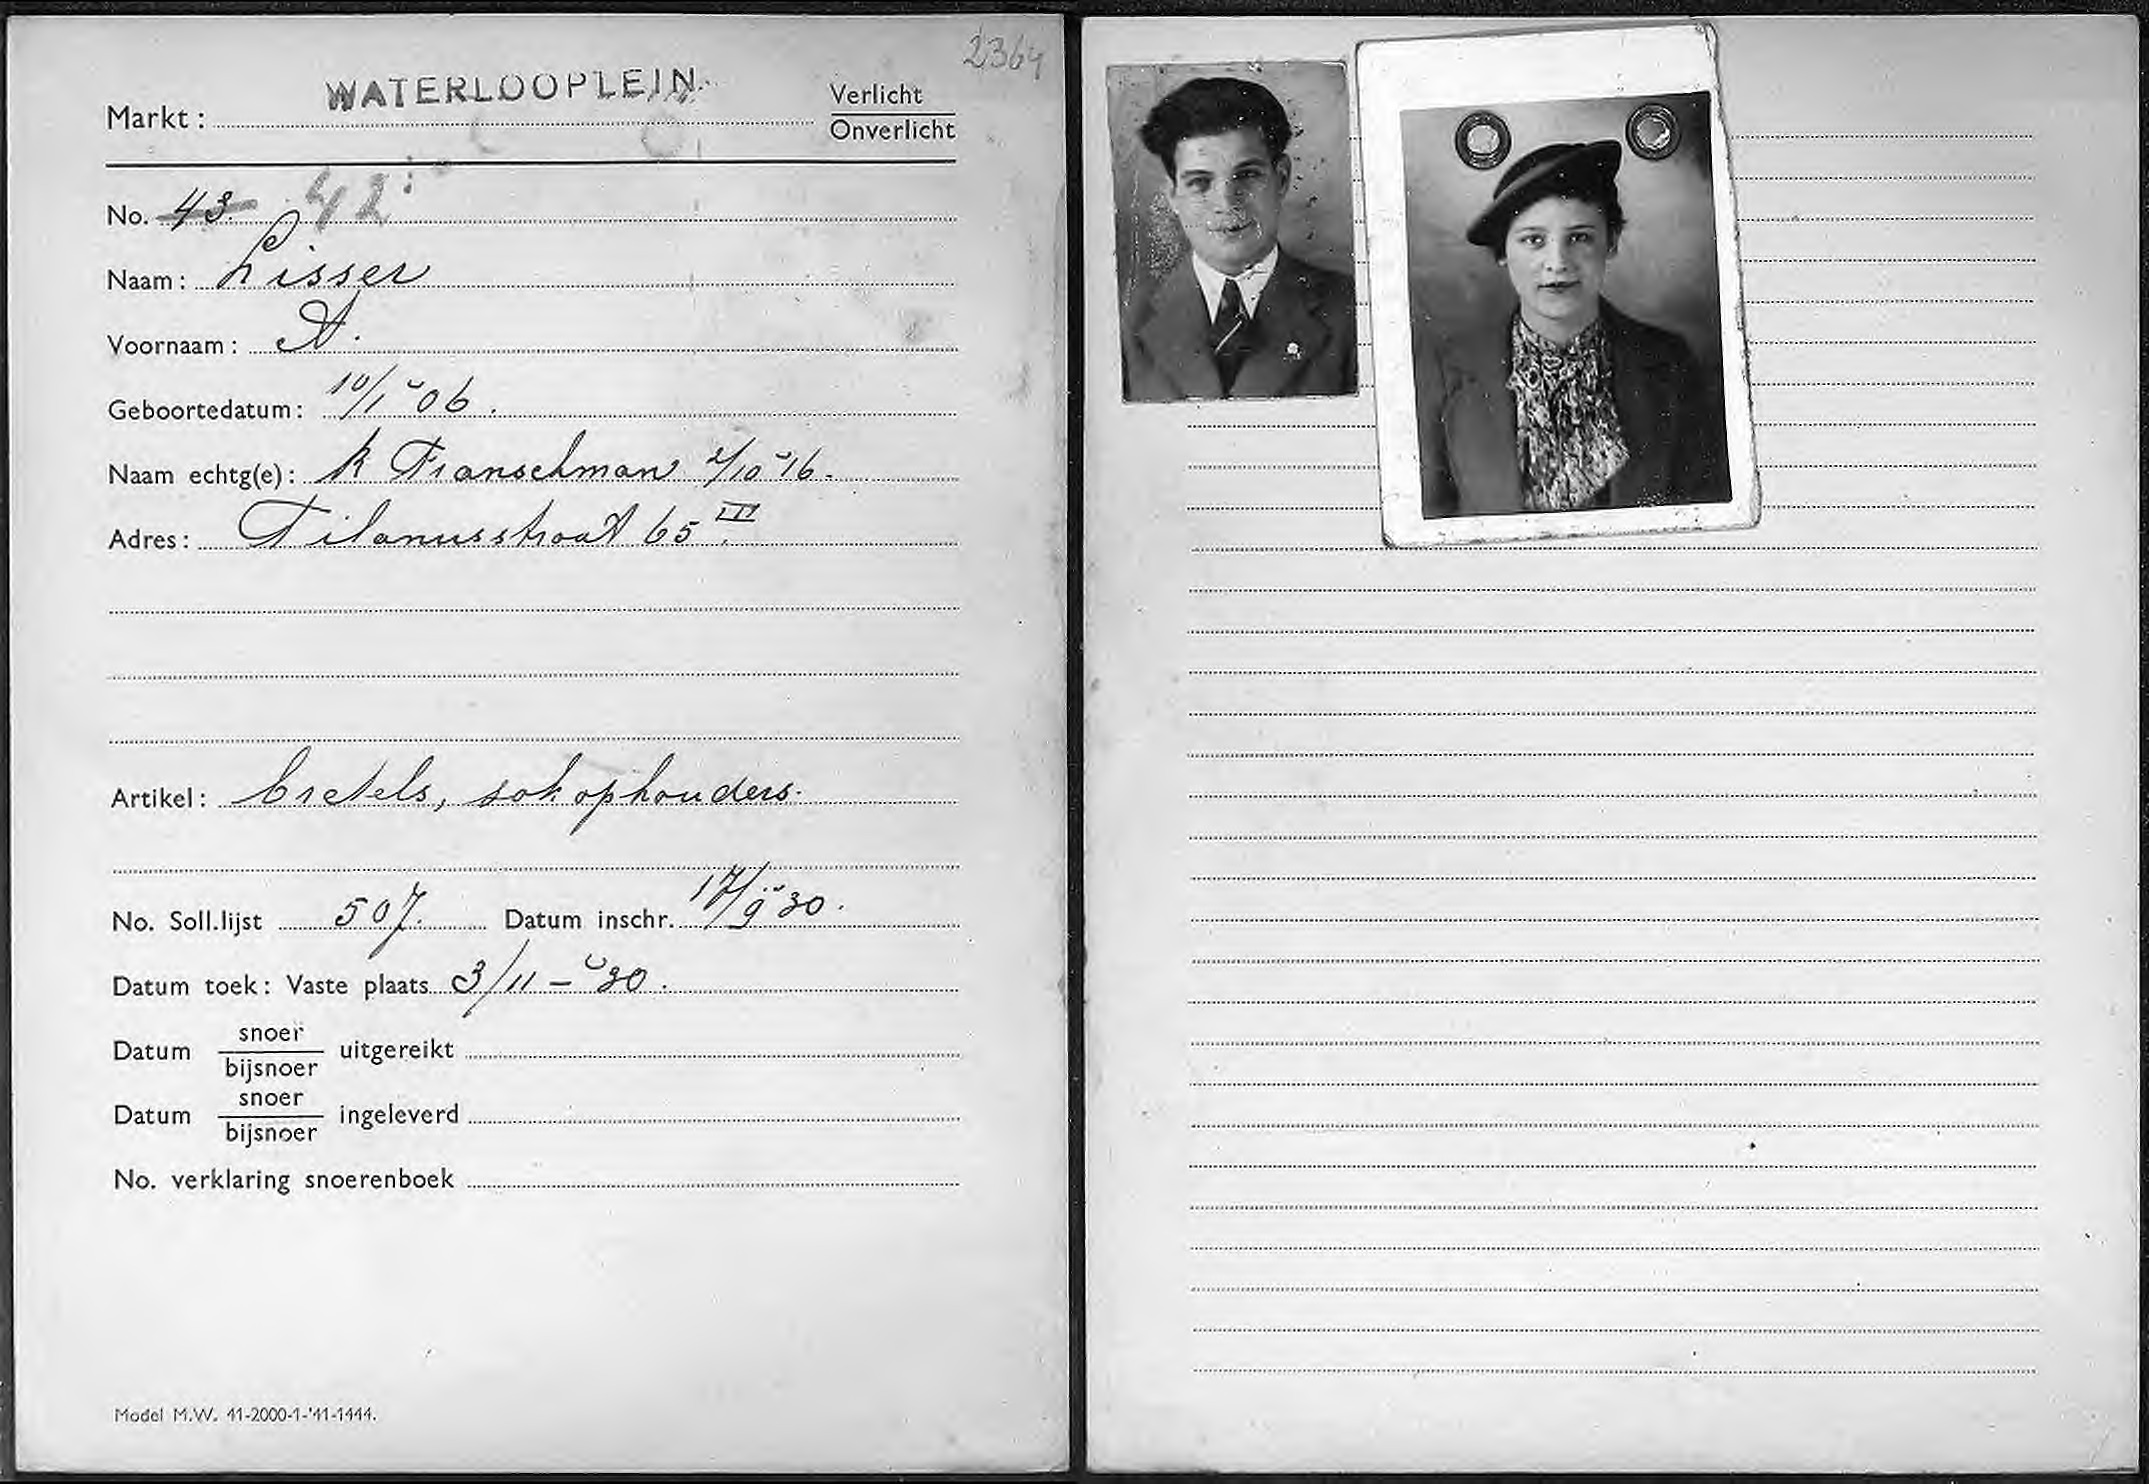 2364
Markt: WATERLOOPLEIN Verlicht
Onverlicht
No. 43 42
Naam: Lisser
Voornaam: A.
Geboortedatum: 10/1 '06.
Naam echtg(e): K Franschman 2/10 '16.
Adres: Tilanusstraat 65 III
Artikel: Bretels, sokophouders.
No. Soll.lijst 507. Datum inschr. 17/9 '30.
Datum toek: Vaste plaats 3/11 - '30.
Datum snoer uitgereikt
bijsnoer
Datum snoer ingeleverd
bijsnoer
No. verklaring snoerenboek
Model M.W. 41-2000-1-'41-1444.